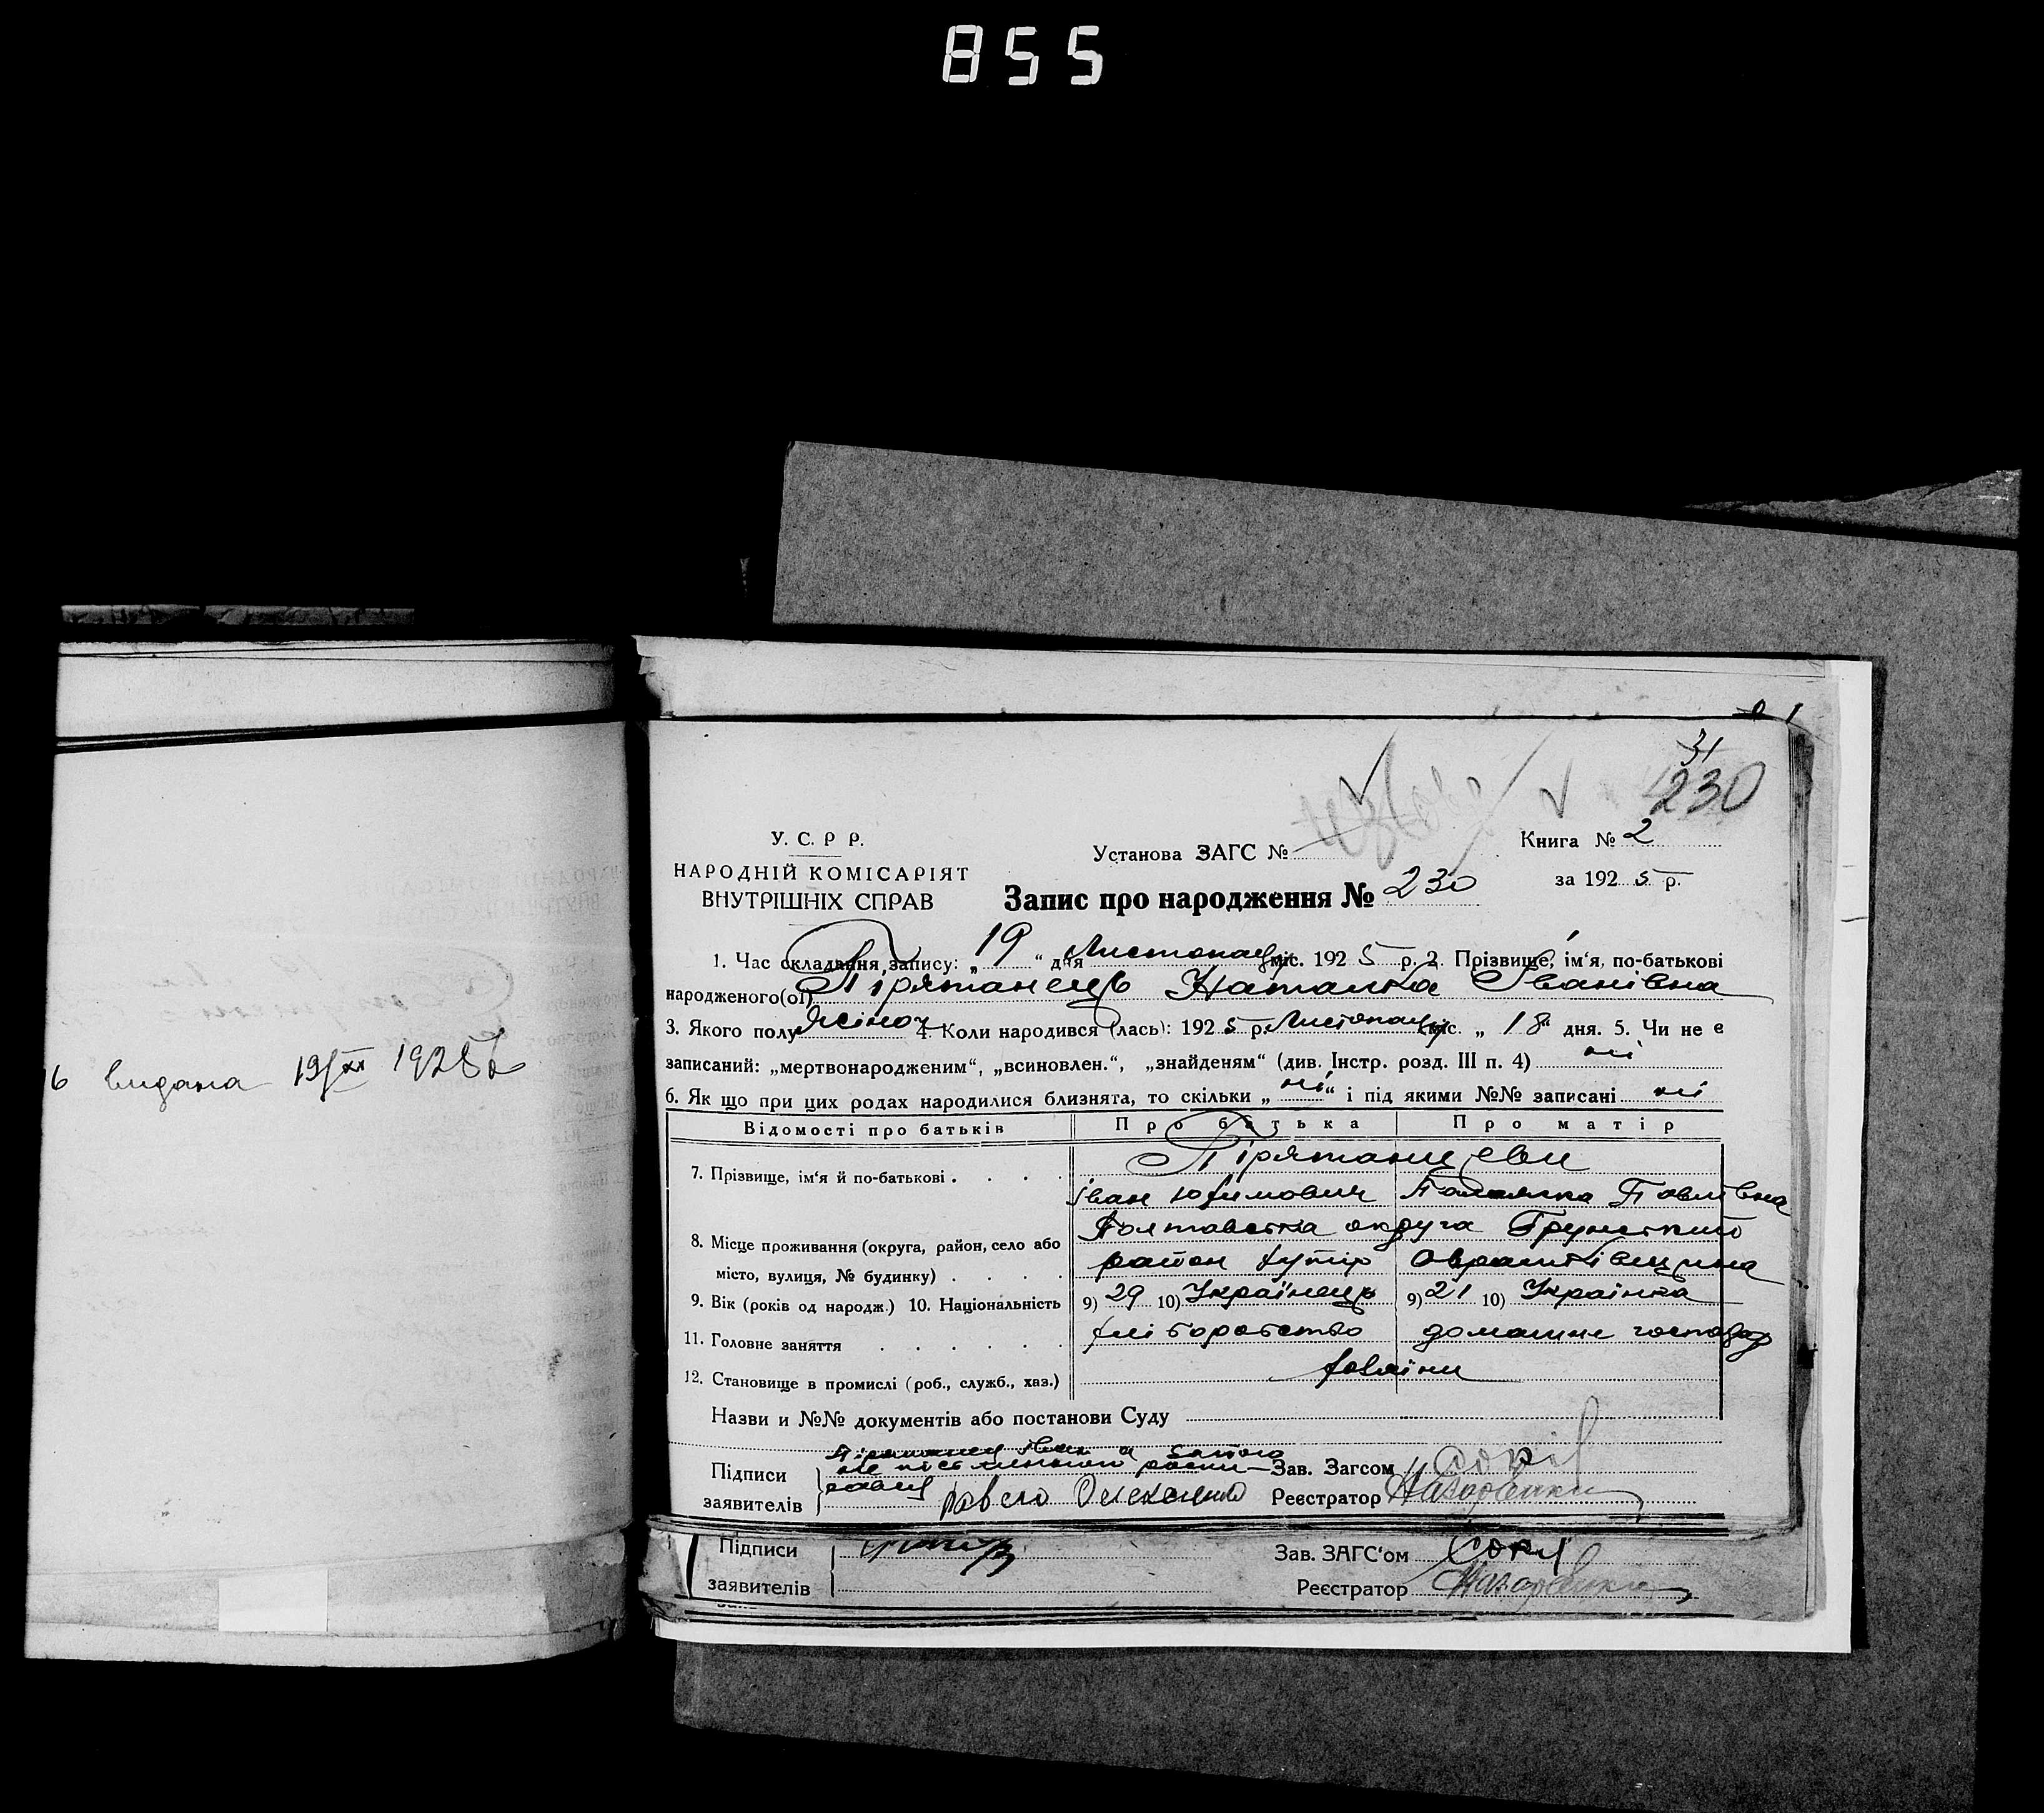 855
6 видана 19/XII 1925
31
230
У. С. Р Р.
НАРОДНІЙ КОМІСАРІЯТ
ВНУТРІШНІХ СПРАВ
Установа ЗАГС №
Книга № 2
за 192 5 р.
Запис про народження № 230
1. Час складання запису: „ 19 “ дня Листопад міс. 192 5 р. 2. Прізвище, ім‘я, по-батькові
народженого(ої) Пірятанець Наталка Іванівна
3. Якого полу жіноч 4. Коли народився (лась): 192 5 р. Листопад міс. „ 18 “ дня. 5. Чи не є
записаний: „мертвонародженим“, „всиновлен.“, „знайденям“ (див. Інстр. розд. III п. 4) ні
6. Як що при цих родах народилися близнята, то скільки „ ні “ і під якими №№ записані ні
Відомості про батьків Про батька Про матір
7. Прізвище, ім‘я й по-батькові . . . . Пірятанцеви
Іван Юхимович Павлівна
8. Місце проживання (округа, район, село або
місто, вулиця, № будинку) . . . .
Полтавська округа Грунський
район хутір
9. Вік (років од народж.) 10. Національність 9) 29 10) Українець 9) 21 10) Українка
11. Головне заняття . . . . . . хліборобство домашнє господар
12. Становище в промислі (роб., служб., хаз.) хазяїни
Назви и №№ документів або постанови Суду
Підписи
заявителів
Іван а за його
Зав. Загсом
Реєстратор
Підписи
заявителів
Зав. ЗАГС‘ом
Реєстратор